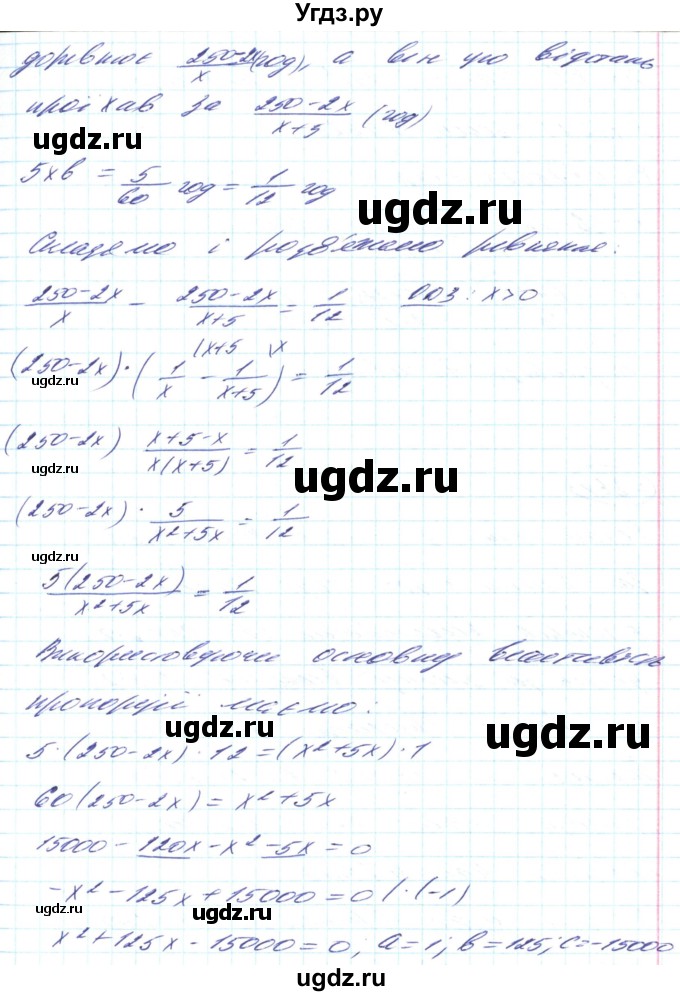 Угдз.ру
дорівнює (250-2x)/x (год), а він цю відстань
проїхав за (250-2x)/(x+5) (год)
ugdz.ru
ugdz.ru
5хв = 5/60 год = 1/12 год
Складемо і розв'яжемо рівняння:
ugdz.ru
(250-2x)/x - (250-2x)/(x+5) = 1/12 ОДЗ: x>0
(x+5 (x
(250-2x)·(1/x - 1/(x+5)) = 1/12
ugdz.ru
(250-2x) (x+5-x)/(x(x+5)) = 1/12
ugdz.ru
ugdz.ru
(250-2x)· 5/(x²+5x) = 1/12
ugdz.ru
5(250-2x)/(x²+5x) = 1/12
Використовуючи основну властивість
ugdz.ru
пропорції маємо:
ugdz.ru
ugdz.ru
5·(250-2x)·12=(x²+5x)·1
60(250-2x)=x²+5x
15000-120x-x²-5x=0
ugdz.ru
-x²-125x+15000=0 /·(-1)
ugdz.ru
x²+125x-15000=0; a=1; b=125; c=-15000
ugdz.ru
ugdz.ru
Угдз.ру